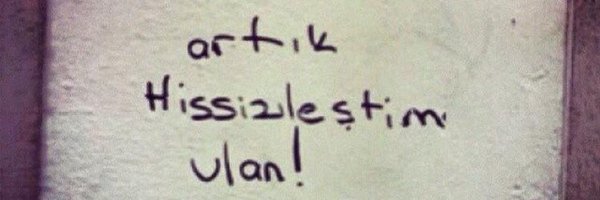 artık
Hissizleştim
ulan!